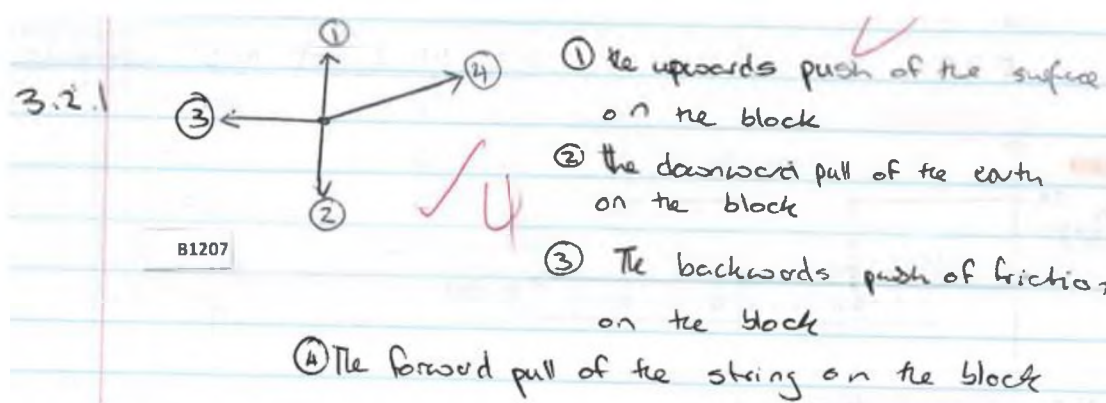 3.2.1
①
④
③
②
4
B1207
① the upwards push of the surface
on the block
② the downward pull of the earth
on the block
③ The backwards push of friction
on the block
④ The forward pull of the string on the block